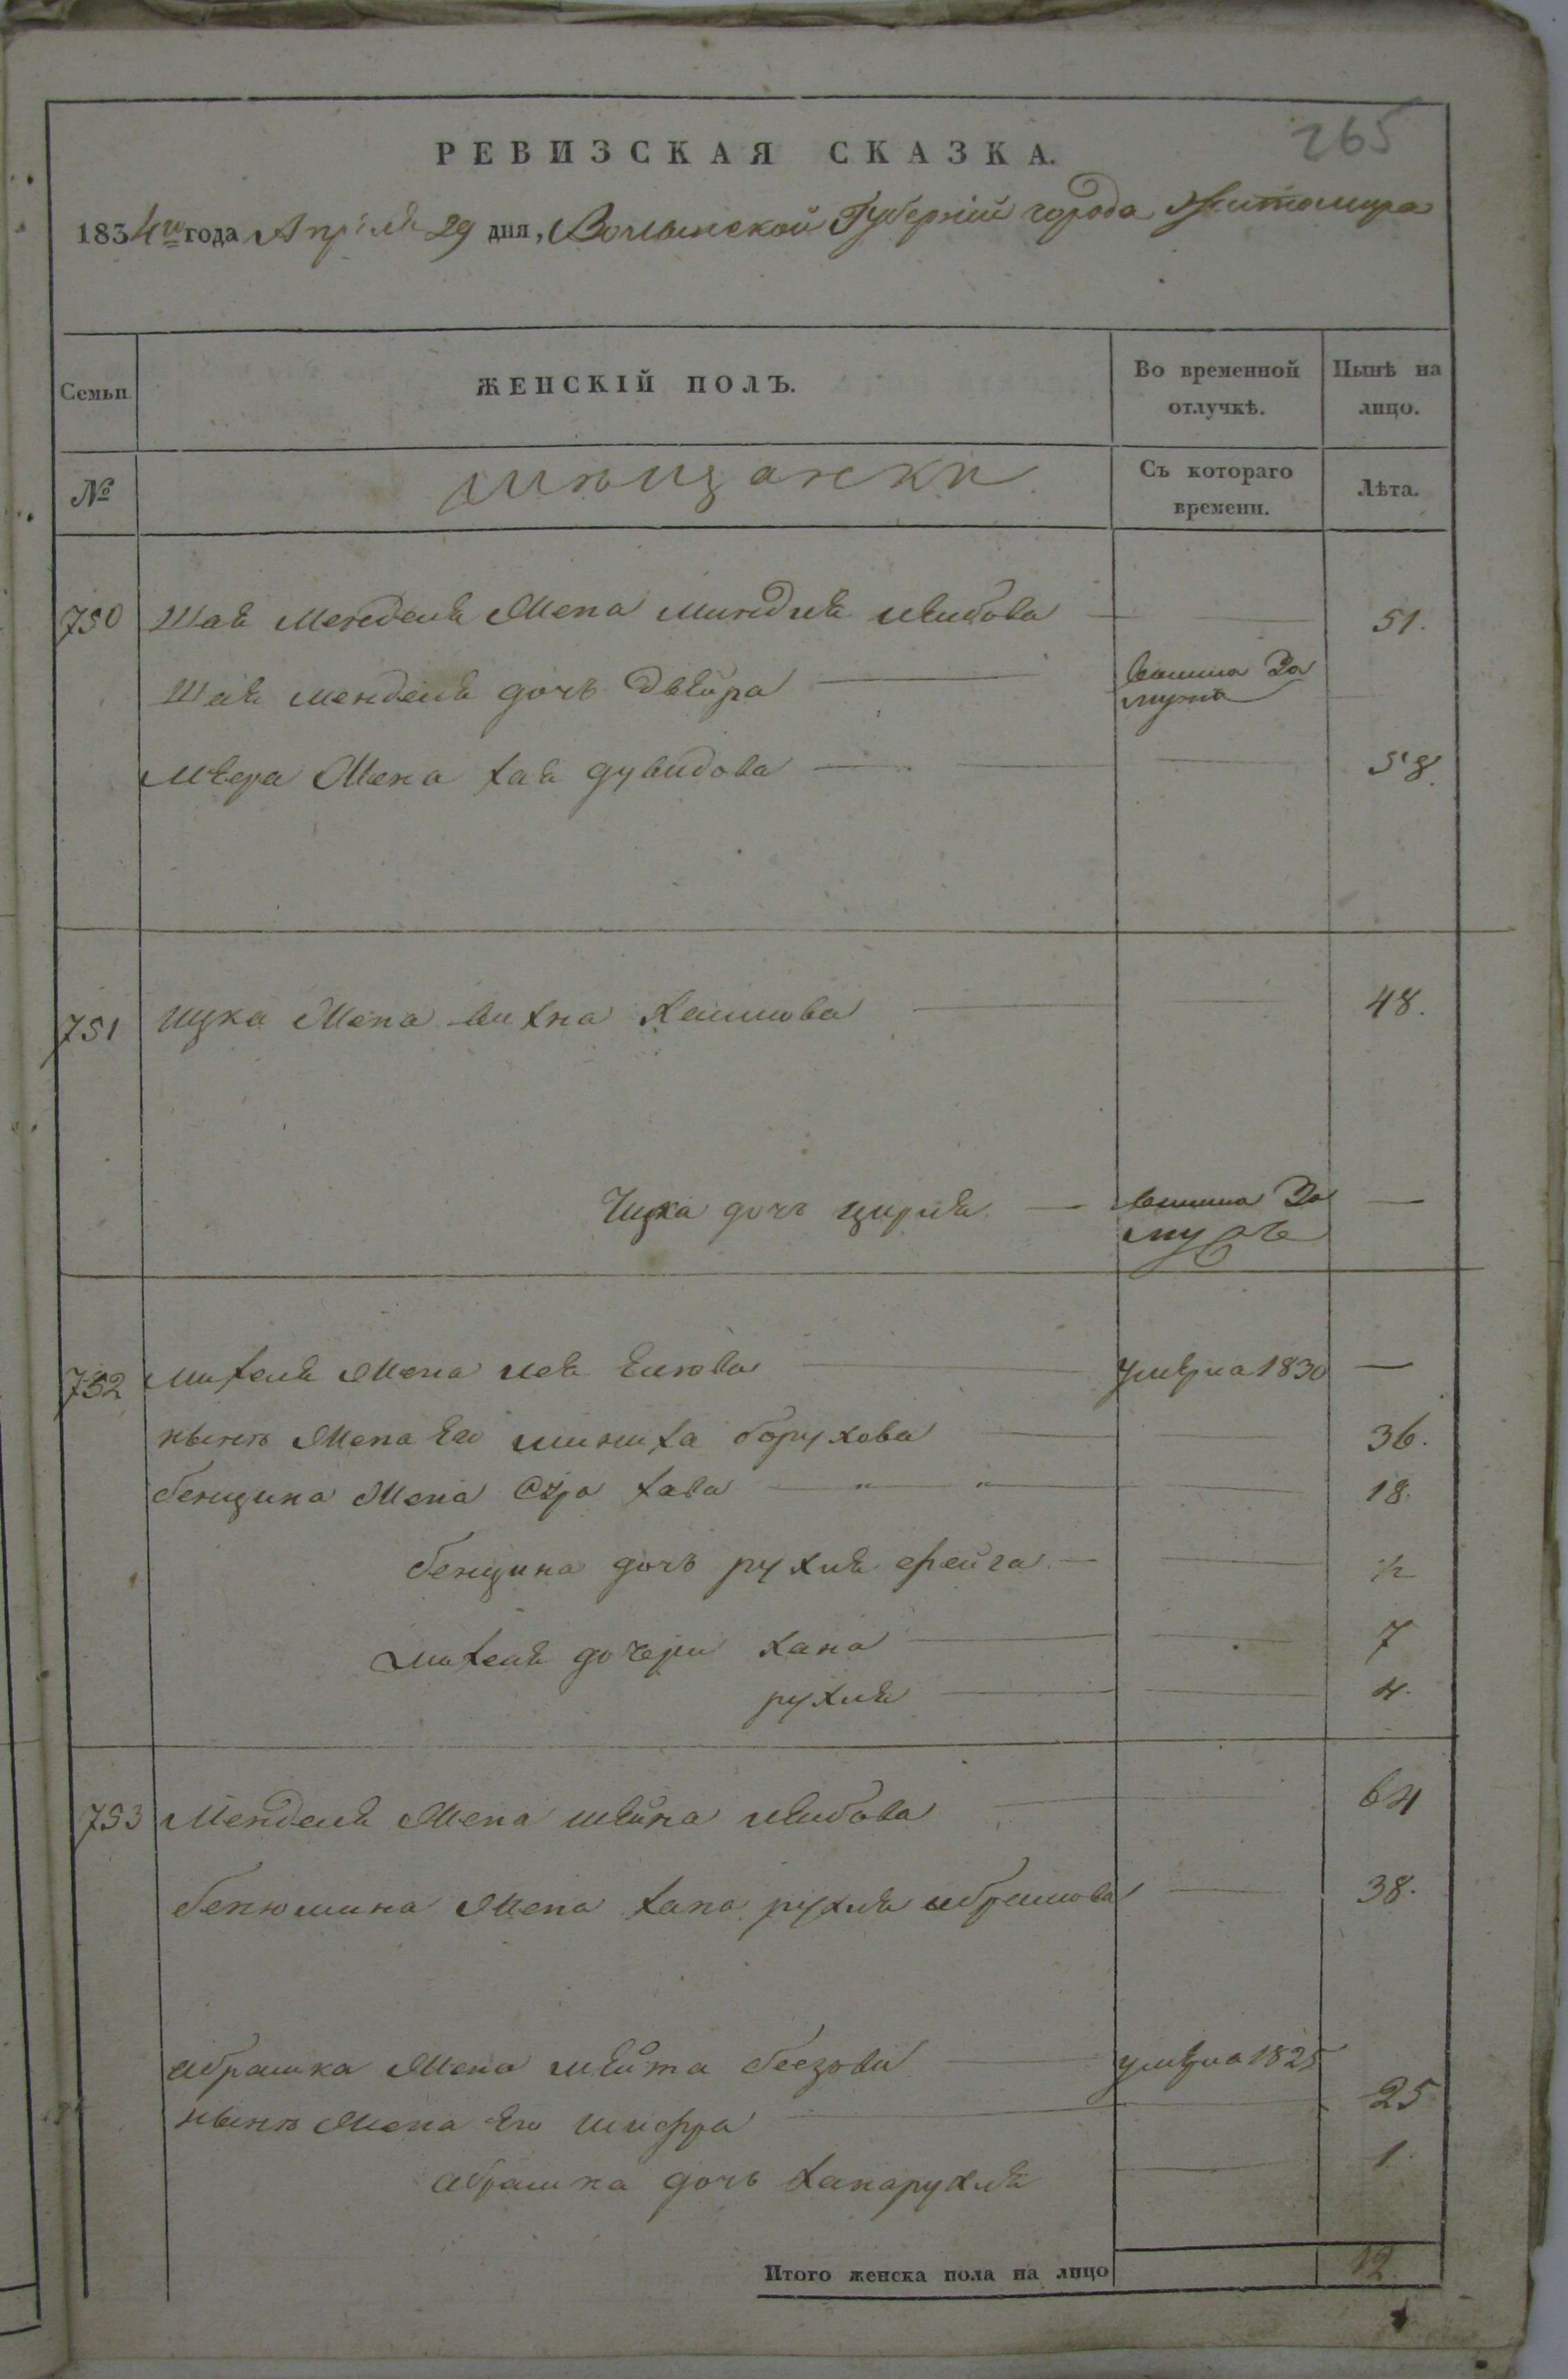 265
РЕВИЗСКАЯ СКАЗКА.
1834го года Апреля 29 дня, Волынской Губернии города Житомира
Семьи
ЖЕНСКІЙ ПОЛЪ.
Во временной отлучкѣ.
Нынѣ на лицо.
№
мѣщански
Съ котораго времени.
Лѣта.
750 Шая Менделя Жена Миндля Лейбова — — 51.
Шая менделя дочь Двейра — вышла За мужъ
Меера Жена хая дувидова — — 58.
751 Ицка Жена вихна Хаимова — — 48.
Ицка дочь цирля — вышла За мужъ —
752 михеля Жена лея Еиова — умерла 1830 —
нынѣ Жена Его миниха борухова — — 36.
бенциина Жена Сура хава — " — " — — 18.
бенциина дочь рухля фейга — — ½
михеля дочери хана — — 7
рухля — — 4.
753 Менделя Жена шейна лейбова — — 64
бенюмина Жена хана рухля абрамова — 38.
абрашка Жена мейта — умерла 1825
нынѣ Жена Его шифра — — 25
абрашка дочь ханарухля — 1.
Итого женска пола на лицо 12.